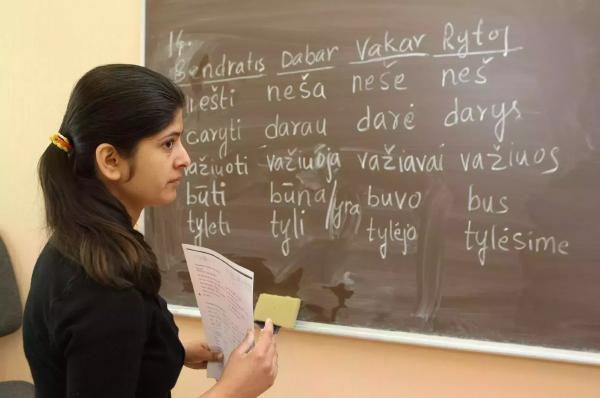 14.
Bendratis Dabar Vakar Rytoj
nešti neša nešė neš
daryti darau darė darys
važiuoti važiuoja važiavai važiuos
būti būna/yra buvo bus
tylėti tyli tylėjo tylėsime